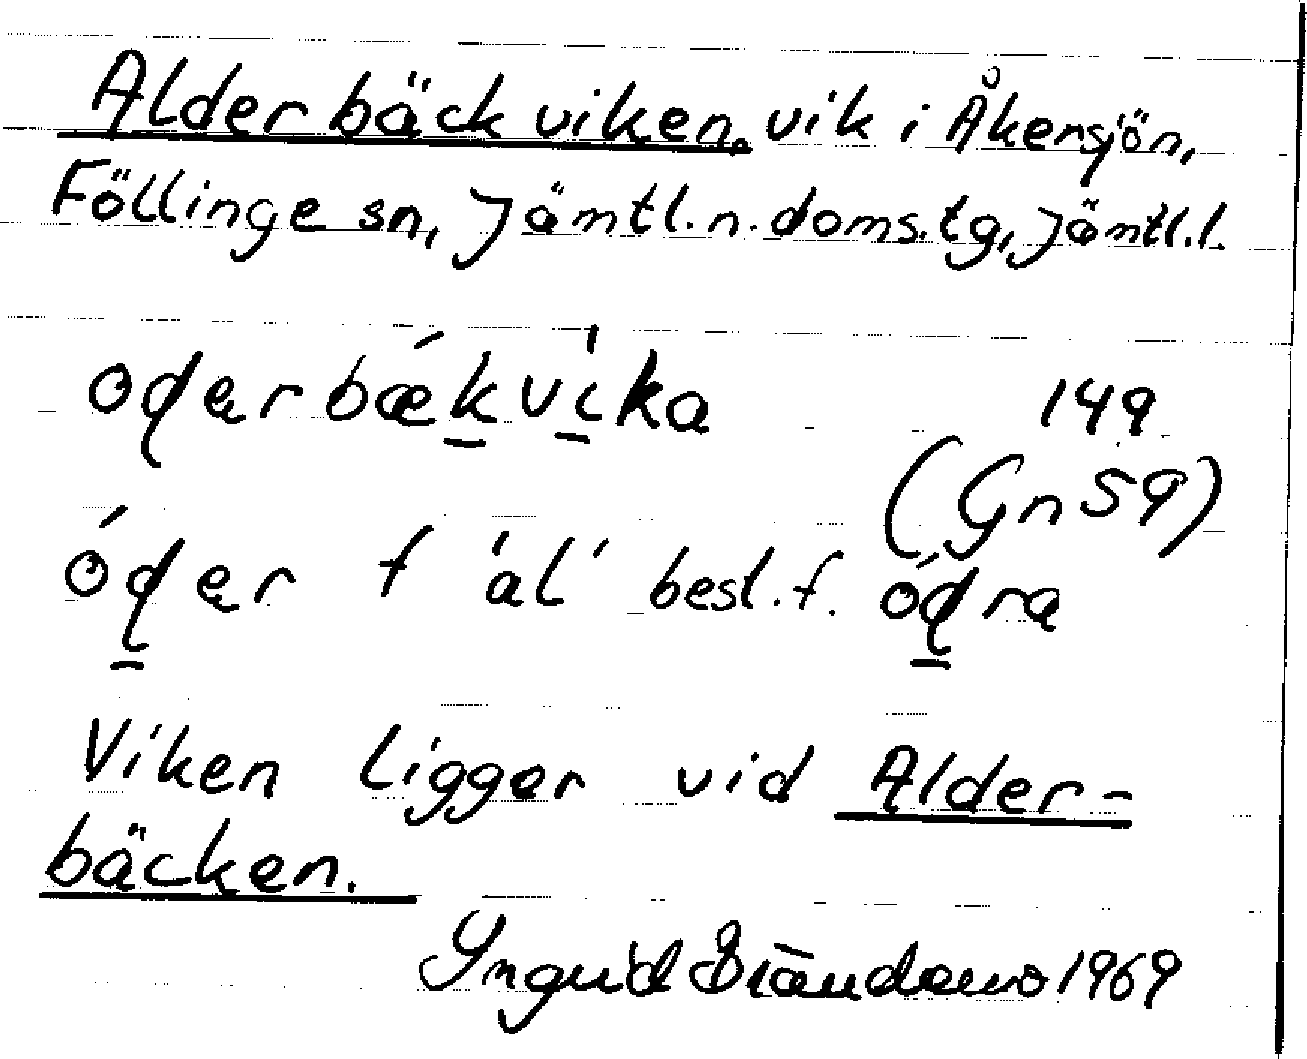 Alderbäckviken, vik i Åkersjön,
Föllinge sn, Jämtl. n. doms. tg, Jämtl. l.
oɖerbǽk̠vi̠̍ka 149
(Gn 59)
óɖ̠er f 'al' best. f. óɖ̠ra
Viken ligger vid Alder-
bäcken.
Ingrid 1969